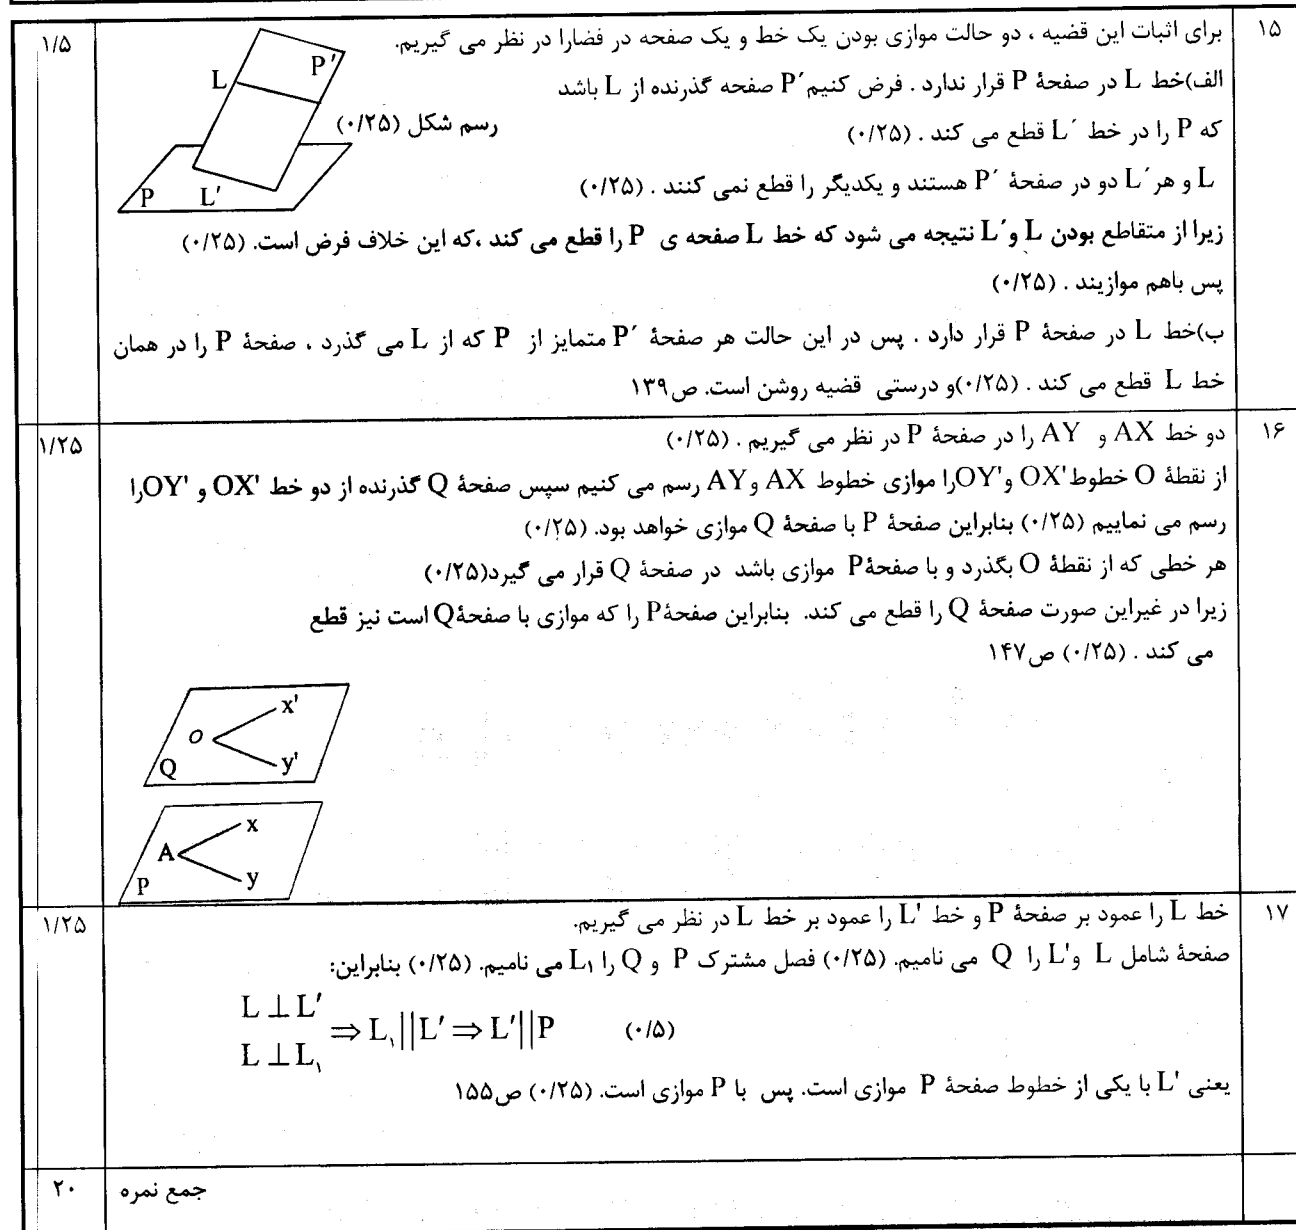 ۱۵
برای اثبات این قضیه ، دو حالت موازی بودن یک خط و یک صفحه در فضارا در نظر می گیریم.
۱/۵
الف)خط L در صفحۀ P قرار ندارد . فرض کنیم P´ صفحه گذرنده از L باشد
که P را در خط L´ قطع می کند . (۰/۲۵)
رسم شکل (۰/۲۵)
L و هر L´ دو در صفحۀ P´ هستند و یکدیگر را قطع نمی کنند . (۰/۲۵)
زیرا از متقاطع بودن L و L´ نتیجه می شود که خط L صفحه ی P را قطع می کند ،که این خلاف فرض است. (۰/۲۵)
پس باهم موازیند . (۰/۲۵)
ب)خط L در صفحۀ P قرار دارد . پس در این حالت هر صفحۀ P´ متمایز از P که از L می گذرد ، صفحۀ P را در همان
خط L قطع می کند . (۰/۲۵)و درستی قضیه روشن است. ص۱۳۹
L
P'
P
L'
۱۶
دو خط AX و AY را در صفحۀ P در نظر می گیریم . (۰/۲۵)
۱/۲۵
از نقطۀ O خطوط OX' و OY'را موازی خطوط AX و AY رسم می کنیم سپس صفحۀ Q گذرنده از دو خط OX' و OY'را
رسم می نماییم (۰/۲۵) بنابراین صفحۀ P با صفحۀ Q موازی خواهد بود. (۰/۲۵)
هر خطی که از نقطۀ O بگذرد و با صفحۀP موازی باشد در صفحۀ Q قرار می گیرد(۰/۲۵)
زیرا در غیراین صورت صفحۀ Q را قطع می کند. بنابراین صفحۀP را که موازی با صفحۀQ است نیز قطع
می کند . (۰/۲۵) ص۱۴۷
x'
O
y'
Q
x
A
y
P
۱۷
خط L را عمود بر صفحۀ P و خط L' را عمود بر خط L در نظر می گیریم.
۱/۲۵
صفحۀ شامل L و L' را Q می نامیم. (۰/۲۵) فصل مشترک P و Q را L۱ می نامیم. (۰/۲۵) بنابراین:
L ⊥ L′
L ⊥ L۱
⇒ L۱ || L′ ⇒ L′ || P (۰/۵)
یعنی L' با یکی از خطوط صفحۀ P موازی است. پس با P موازی است. (۰/۲۵) ص۱۵۵
جمع نمره
۲۰